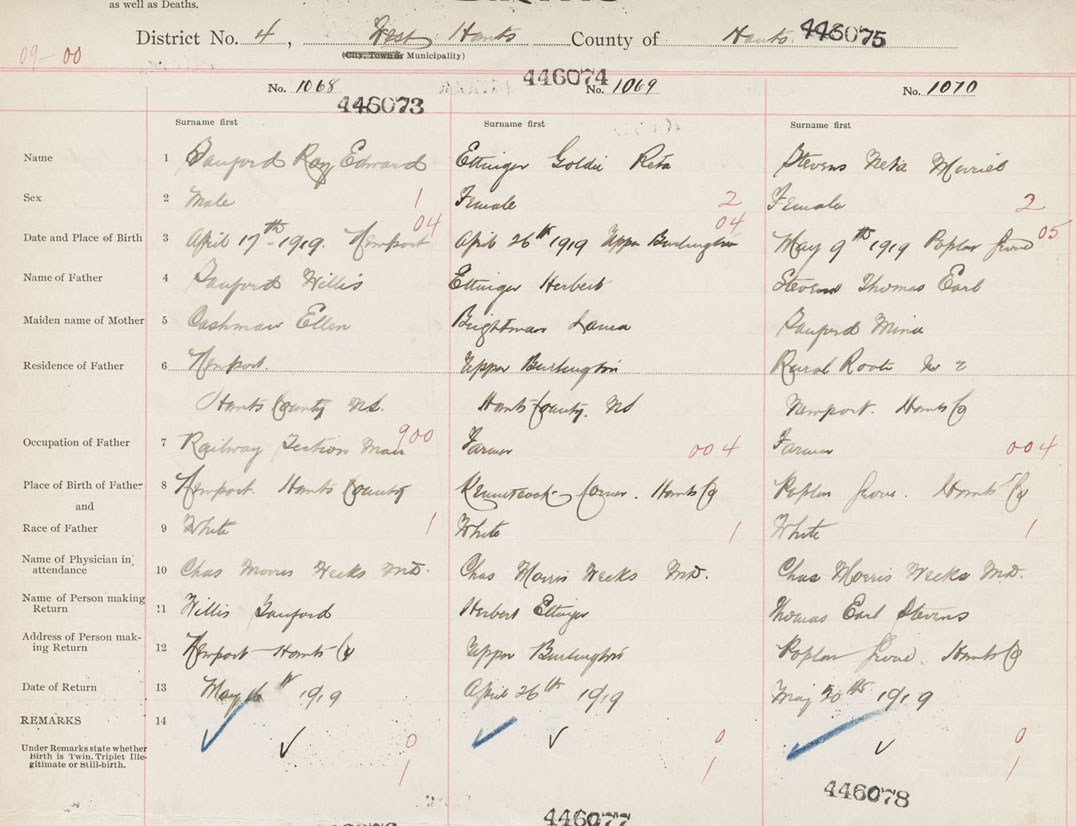 as well as Deaths.
District No. 4, West Hants County of Hants 446075
(City, Town or Municipality)
09-00
446074
No. 1068 No. 1069 No. 1070
446073
Surname first Surname first Surname first
Name 1 Sanford Ray Edward Ettinger Goldie Reta Stevens Muriel
Sex 2 Male 1 Female 2 Female 2
04 04 05
Date and Place of Birth 3 April 17th 1919. Newport April 26th 1919 Upper Burlington May 9th 1919 Poplar Grove
Name of Father 4 Sanford Willis Ettinger Herbert Stevens Thomas Earl
Maiden name of Mother 5 Cashman Ellen Brightman Laura Sanford Mina
Residence of Father 6 Newport. Upper Burlington Rural Route No 2
Hants County NS. Hants County. NS Newport. Hants Co
Occupation of Father 7 Railway Section Man 900 Farmer 004 Farmer 004
Place of Birth of Father 8 Newport. Hants County Kennetcook Corner. Hants Co Poplar Grove. Hants Co
and
Race of Father 9 White 1 White 1 White 1
Name of Physician in attendance 10 Chas Morris Weeks MD. Chas Morris Weeks MD. Chas Morris Weeks MD.
Name of Person making Return 11 Willis Sanford Herbert Ettinger Thomas Earl Stevens
Address of Person making Return 12 Newport Hants Co Upper Burlington Poplar Grove. Hants Co
Date of Return 13 May 16th 1919 April 26th 1919 May 20th 1919
REMARKS 14
Under Remarks state whether Birth is Twin, Triplet Illegitimate or Still-birth. 0 0 0
1 1 1
446078
446077